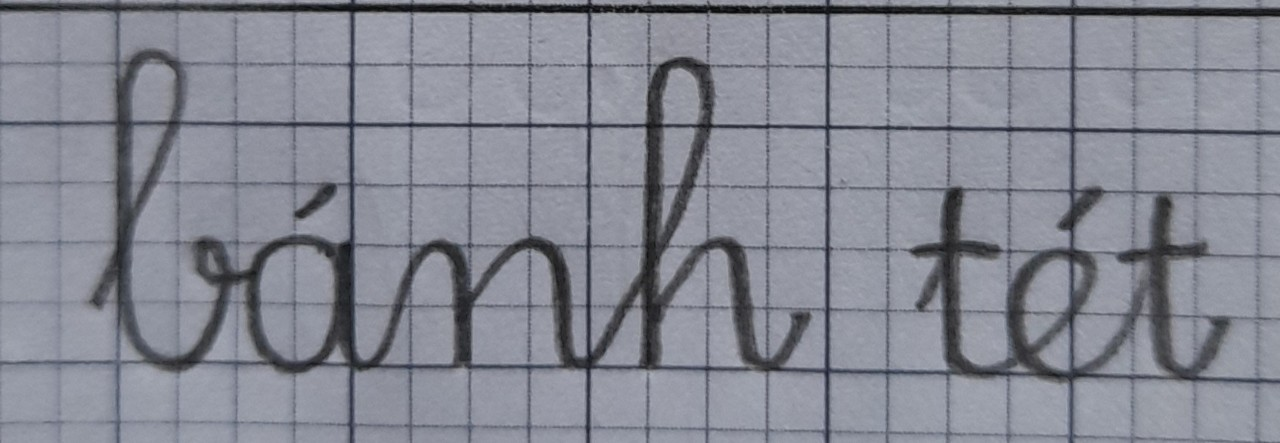 bánh tét